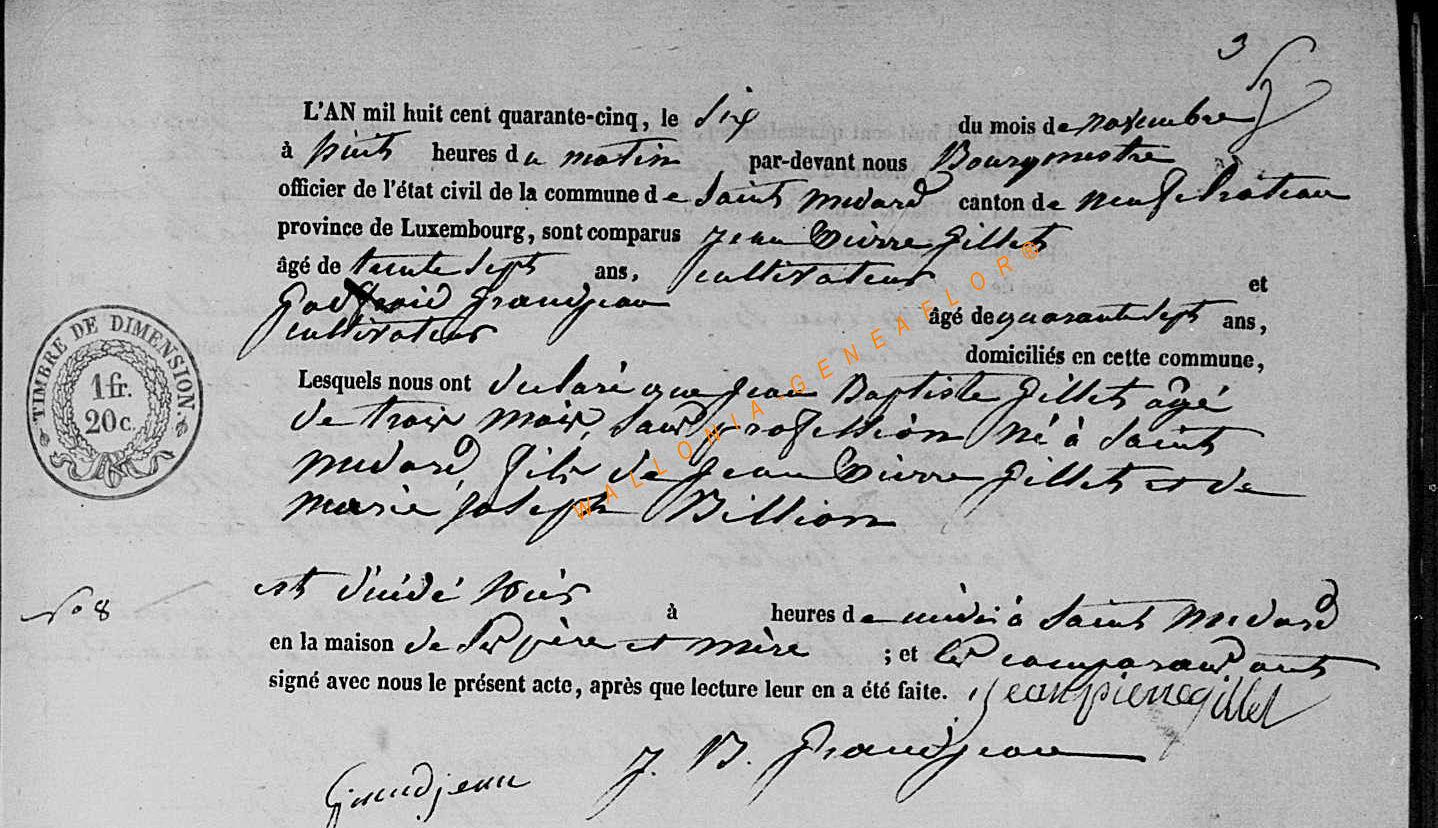 3
L'AN mil huit cent quarante-cinq, le Six du mois de novembre
à huit heures du matin par-devant nous Bourgmestre
officier de l'état civil de la commune de Saint medard canton de neufchateau
province de Luxembourg, sont comparus Jean Pierre Gillet
âgé de trente Sept ans, cultivateur et
Godfroid Grandjean âgé de quarante Sept ans,
cultivateur domiciliés en cette commune,
Lesquels nous ont declaré que Jean Baptiste Gillet agé
de trois mois, Sans profession né à Saint
medard, fils de Jean Pierre Gillet et de
marie joseph Billion
N° 8
est décédé hier à heures de midi à Saint medard
en la maison de Ses père et mère ; et les comparans ont
signé avec nous le présent acte, après que lecture leur en a été faite. jean pierre gillet
J. B. Grandjean
Grandjean
TIMBRE DE DIMENSION.
1 fr.
20 c.
WALLONIA-GENEAFLOR®